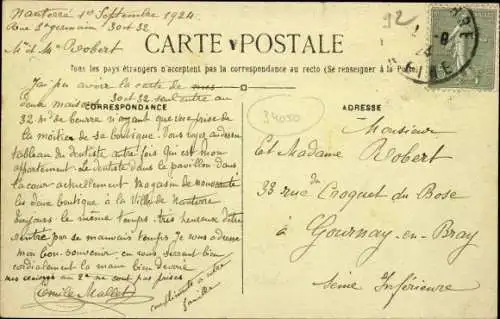 Nanterre 1er Septembre 1924
Rue St germain 30 et 32
Mr et Me Robert
92
CARTE POSTALE
Tous les pays étrangers n'acceptent pas la correspondance au recto (Se renseigner à la Poste)
J'ai pu avoir la carte de mes
deux maisons 30 et 32 seul entre au
CORRESPONDANCE
ADRESSE
32 Md de beurre n'ayant que une prise de
la moitié de sa boutique. Vous voyez au dessus
tableau du dentiste autre fois qui est mon
appartement. Le dentiste dans le pavillon dans
la cour actuellement Magasin de nouveauté
les deux boutique à la Ville de Nanterre
toujours le même temps. très heureux d'être
rentré par se mauvais temps. Je vous adresse
mon bon souvenir en vous serrant bien
cordialement la main bien dévoué
mes au 2e ne sont pas prises
Emile Mallet
compliments à votre
famille
34050
Monsieur
Et Madame Robert
33 rue du Croquet du Bose
à Gournay-en-Bray
Seine Inférieure